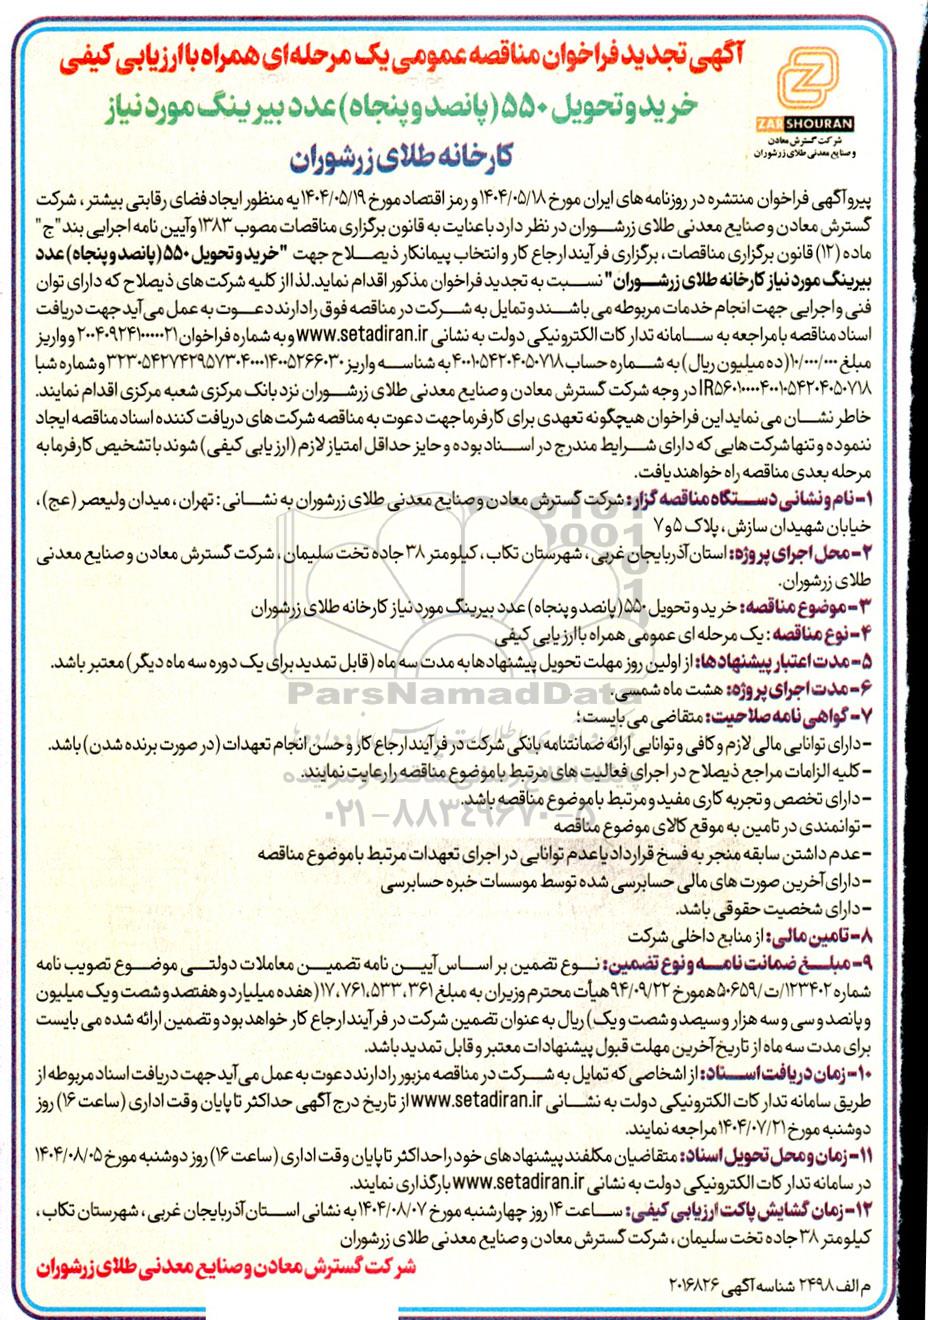 آگهی تجدید فراخوان مناقصه عمومی یک مرحله ای همراه با ارزیابی کیفی
خرید و تحویل ۵۵۰ (پانصد و پنجاه) عدد بیرینگ مورد نیاز
کارخانه طلای زرشوران
ZARSHOURAN
شرکت گسترش معادن
و صنایع معدنی طلای زرشوران
پیرو آگهی فراخوان منتشره در روزنامه های ایران مورخ ۱۴۰۴/۰۵/۱۸ و رمز اقتصاد مورخ ۱۴۰۴/۰۵/۱۹ به منظور ایجاد فضای رقابتی بیشتر ، شرکت
گسترش معادن و صنایع معدنی طلای زرشوران در نظر دارد با عنایت به قانون برگزاری مناقصات مصوب ۱۳۸۳ و آیین نامه اجرایی بند "ج"
ماده (۱۲) قانون برگزاری مناقصات ، برگزاری فرآیند ارجاع کار و انتخاب پیمانکار ذیصلاح جهت "خرید و تحویل ۵۵۰ (پانصد و پنجاه) عدد
بیرینگ مورد نیاز کارخانه طلای زرشوران" نسبت به تجدید فراخوان مذکور اقدام نماید. لذا از کلیه شرکت های ذیصلاح که دارای توان
فنی و اجرایی جهت انجام خدمات مربوطه می باشند و تمایل به شرکت در مناقصه فوق را دارند دعوت به عمل می آید جهت دریافت
اسناد مناقصه با مراجعه به سامانه تدارکات الکترونیکی دولت به نشانی www.setadiran.ir و به شماره فراخوان ۲۰۰۴۰۹۲۴۱۰۰۰۰۰۲۱ و واریز
مبلغ ۱۰/۰۰۰/۰۰۰ (ده میلیون ریال) به شماره حساب ۴۰۰۱۰۵۴۲۰۴۰۵۰۷۱۸ به شناسه واریز ۳۲۳۰۵۴۲۷۴۲۹۵۷۳۰۴۰۰۰۱۴۰۰۵۲۶۶۰۳۰ و شماره شبا
IR۵۶۰۱۰۰۰۰۴۰۰۱۰۵۴۲۰۴۰۵۰۷۱۸ در وجه شرکت گسترش معادن و صنایع معدنی طلای زرشوران نزد بانک مرکزی شعبه مرکزی اقدام نمایند.
خاطر نشان می نماید این فراخوان هیچگونه تعهدی برای کارفرما جهت دعوت به مناقصه شرکت های دریافت کننده اسناد مناقصه ایجاد
ننموده و تنها شرکت هایی که دارای شرایط مندرج در اسناد بوده و حایز حداقل امتیاز لازم (ارزیابی کیفی) شوند با تشخیص کارفرما به
مرحله بعدی مناقصه راه خواهند یافت.
۱- نام و نشانی دستگاه مناقصه گزار: شرکت گسترش معادن و صنایع معدنی طلای زرشوران به نشانی : تهران ، میدان ولیعصر (عج) ،
خیابان شهیدان سازش ، پلاک ۵ و ۷
۲- محل اجرای پروژه: استان آذربایجان غربی ، شهرستان تکاب ، کیلومتر ۳۸ جاده تخت سلیمان ، شرکت گسترش معادن و صنایع معدنی
طلای زرشوران.
۳- موضوع مناقصه: خرید و تحویل ۵۵۰ (پانصد و پنجاه) عدد بیرینگ مورد نیاز کارخانه طلای زرشوران
۴- نوع مناقصه : یک مرحله ای عمومی همراه با ارزیابی کیفی
۵- مدت اعتبار پیشنهادها: از اولین روز مهلت تحویل پیشنهادها به مدت سه ماه (قابل تمدید برای یک دوره سه ماه دیگر) معتبر باشد.
ParsNamadData
۶- مدت اجرای پروژه: هشت ماه شمسی.
۷- گواهی نامه صلاحیت: متقاضی می بایست؛
- دارای توانایی مالی لازم و کافی و توانایی ارائه ضمانتنامه بانکی شرکت در فرآیند ارجاع کار و حسن انجام تعهدات (در صورت برنده شدن) باشد.
- کلیه الزامات مراجع ذیصلاح در اجرای فعالیت های مرتبط با موضوع مناقصه را رعایت نمایند.
- دارای تخصص و تجربه کاری مفید و مرتبط با موضوع مناقصه باشد.
۰۲۱-۸۸۳۴۹۶۷۰-۵
- توانمندی در تامین به موقع کالای موضوع مناقصه
- عدم داشتن سابقه منجر به فسخ قرارداد یا عدم توانایی در اجرای تعهدات مرتبط با موضوع مناقصه
- دارای آخرین صورت های مالی حسابرسی شده توسط موسسات خبره حسابرسی
- دارای شخصیت حقوقی باشد.
۸- تامین مالی: از منابع داخلی شرکت
۹- مبلغ ضمانت نامه و نوع تضمین: نوع تضمین بر اساس آیین نامه تضمین معاملات دولتی موضوع تصویب نامه
شماره ۱۲۳۴۰۲/ت/۵۰۶۵۹ ه مورخ ۹۴/۰۹/۲۲ هیأت محترم وزیران به مبلغ ۱۷،۷۶۱،۵۳۳،۳۶۱ (هفده میلیارد و هفتصد و شصت و یک میلیون
و پانصد و سی و سه هزار و سیصد و شصت و یک) ریال به عنوان تضمین شرکت در فرآیند ارجاع کار خواهد بود و تضمین ارائه شده می بایست
برای مدت سه ماه از تاریخ آخرین مهلت قبول پیشنهادات معتبر و قابل تمدید باشد.
۱۰- زمان دریافت اسناد: از اشخاصی که تمایل به شرکت در مناقصه مزبور را دارند دعوت به عمل می آید جهت دریافت اسناد مربوطه از
طریق سامانه تدارکات الکترونیکی دولت به نشانی www.setadiran.ir از تاریخ درج آگهی حداکثر تا پایان وقت اداری (ساعت ۱۶) روز
دوشنبه مورخ ۱۴۰۴/۰۷/۲۱ مراجعه نمایند.
۱۱- زمان و محل تحویل اسناد: متقاضیان مکلفند پیشنهادهای خود را حداکثر تا پایان وقت اداری (ساعت ۱۶) روز دوشنبه مورخ ۱۴۰۴/۰۸/۰۵
در سامانه تدارکات الکترونیکی دولت به نشانی www.setadiran.ir بارگذاری نمایند.
۱۲- زمان گشایش پاکت ارزیابی کیفی: ساعت ۱۴ روز چهارشنبه مورخ ۱۴۰۴/۰۸/۰۷ به نشانی استان آذربایجان غربی ، شهرستان تکاب ،
کیلومتر ۳۸ جاده تخت سلیمان ، شرکت گسترش معادن و صنایع معدنی طلای زرشوران
شرکت گسترش معادن و صنایع معدنی طلای زرشوران
م الف ۲۴۹۸ شناسه آگهی ۲۰۱۶۸۲۶